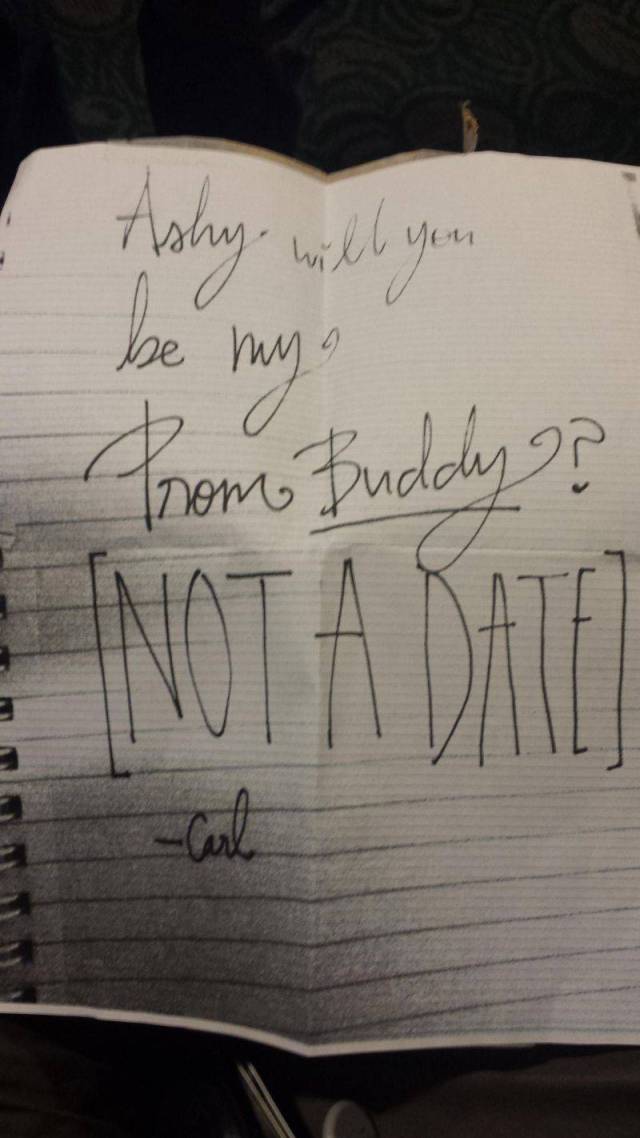 Ashy. will you
be my
Prom Buddy?
[NOT A DATE]
-Carl